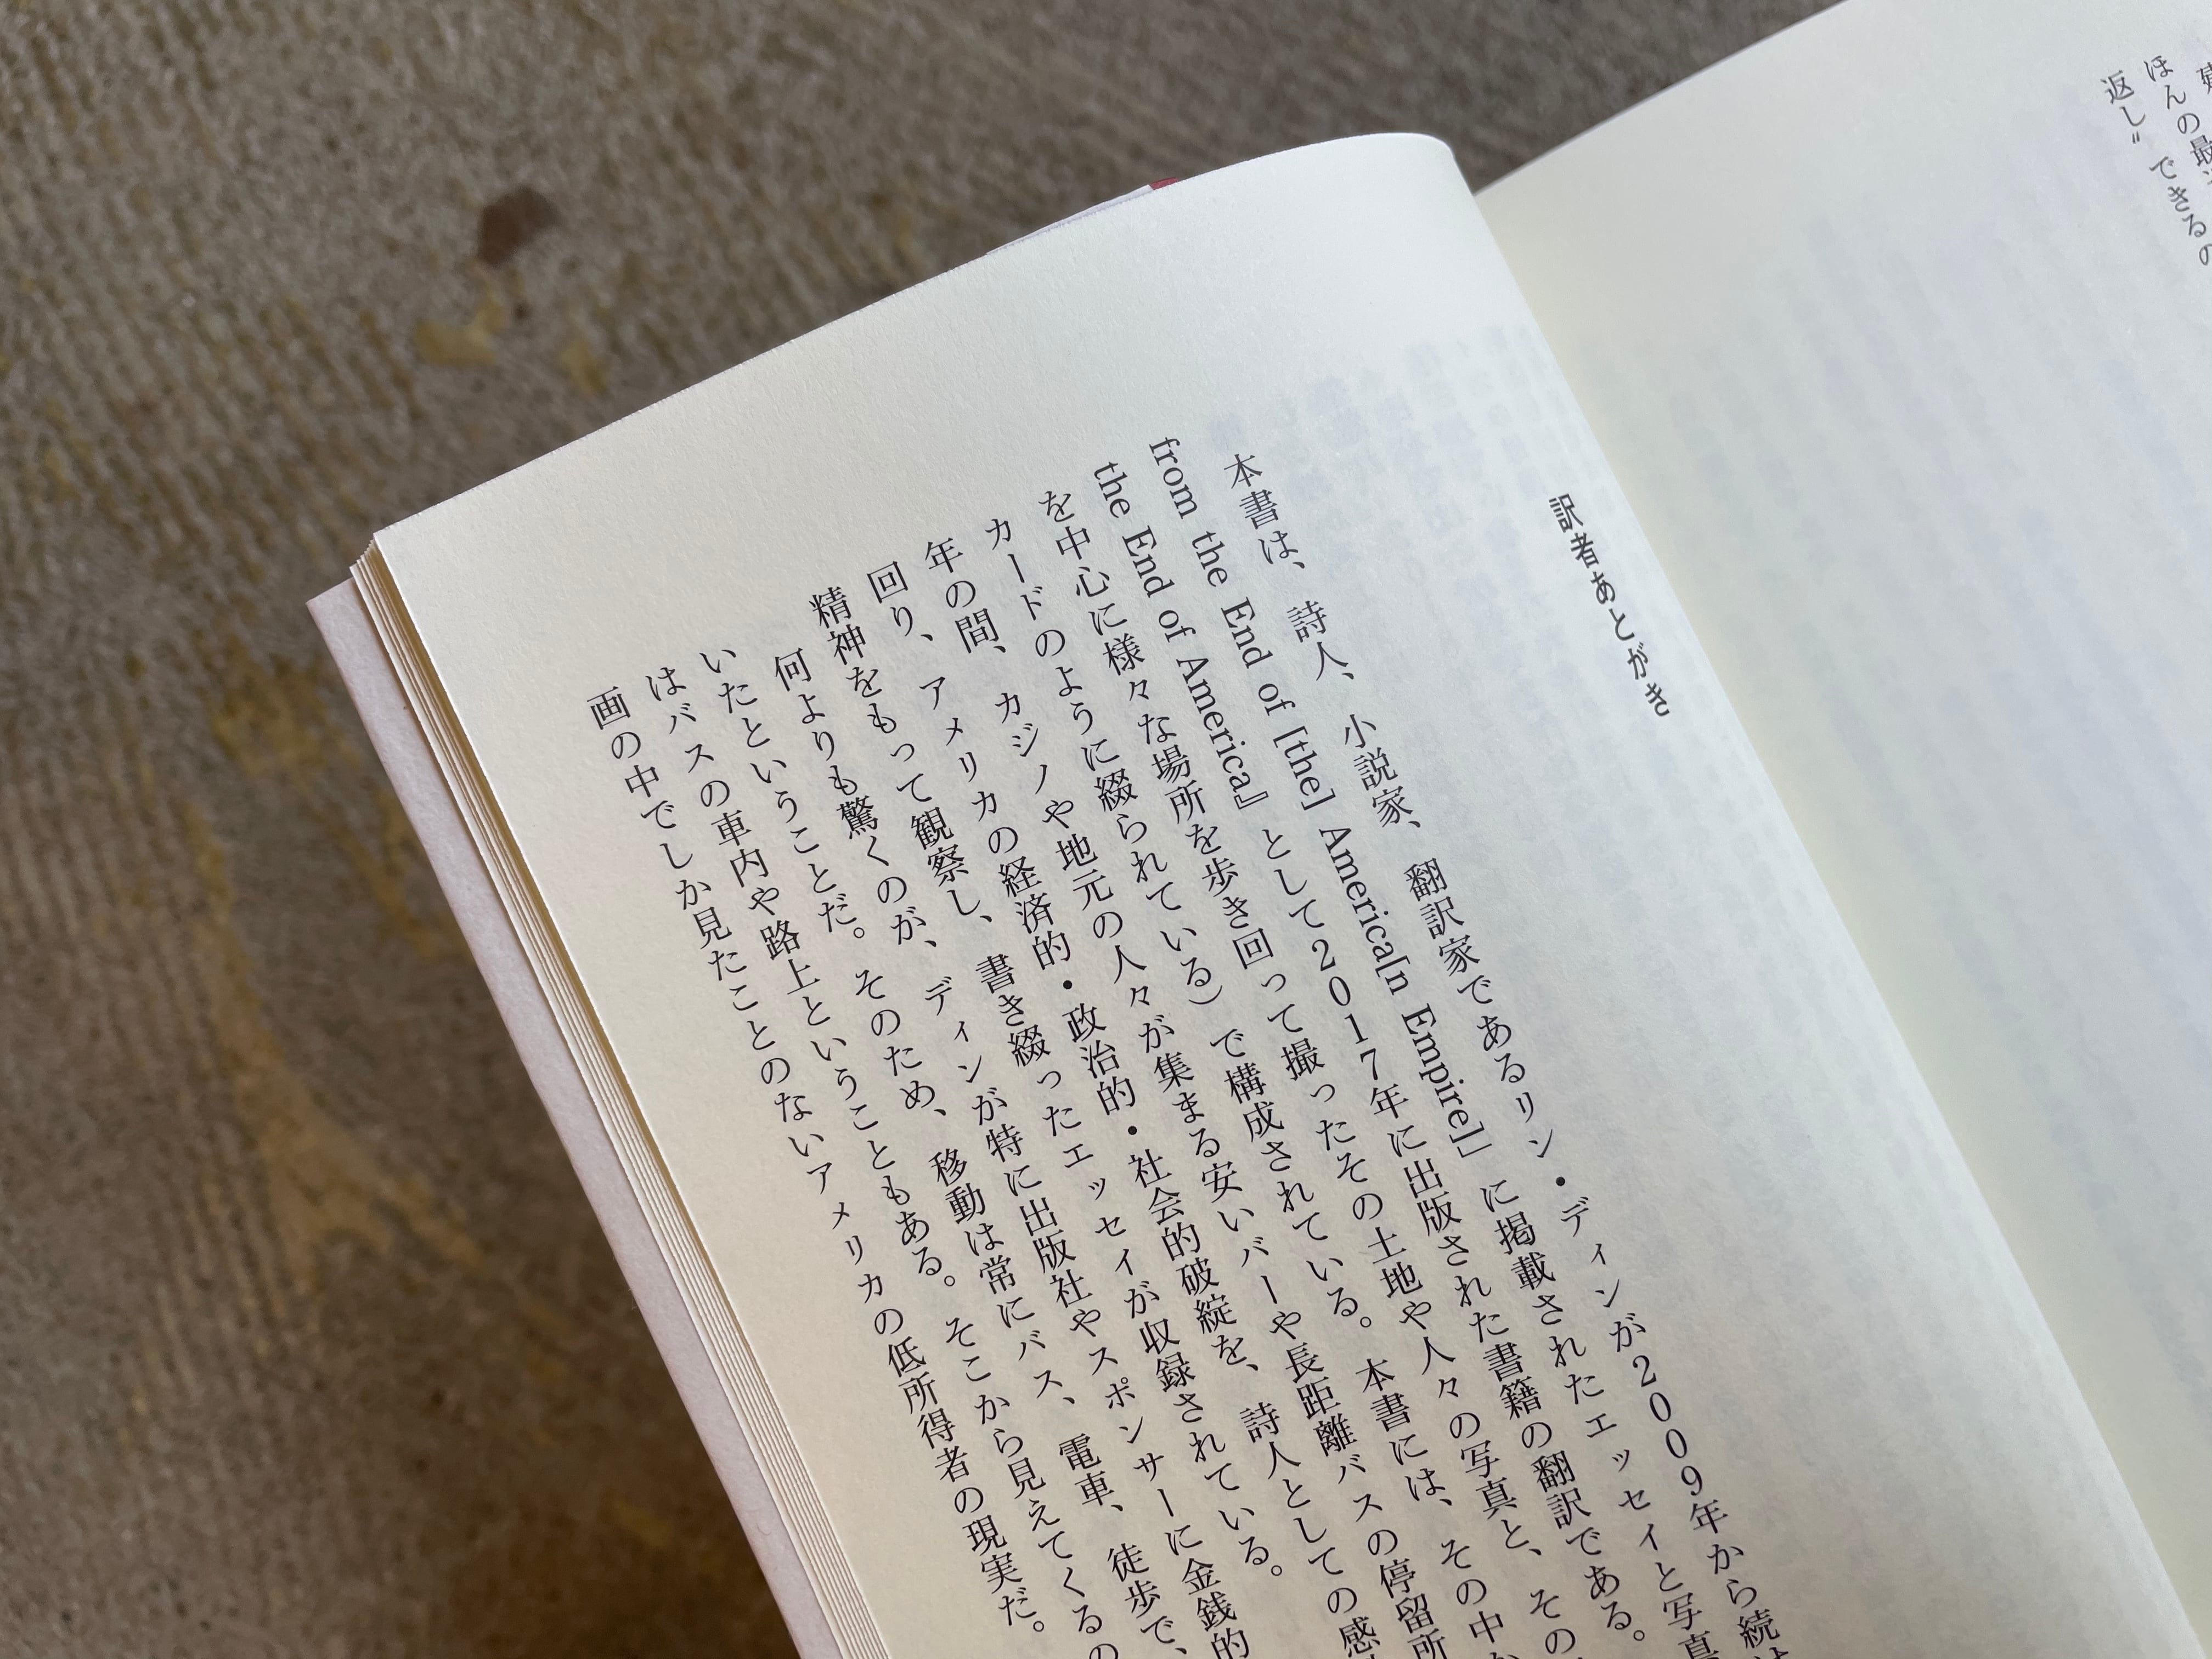 ほんの最
返し〟できるの
訳者あとがき
本書は、詩人、小説家、翻訳家であるリン・ディンが2009年から続け
from the End of [the] America[n Empire]」に掲載されたエッセイと写真
the End of America』として2017年に出版された書籍の翻訳である。
を中心に様々な場所を歩き回って撮ったその土地や人々の写真と、その
カードのように綴られている）で構成されている。本書には、その中か
年の間、カジノや地元の人々が集まる安いバーや長距離バスの停留所
回り、アメリカの経済的・政治的・社会的破綻を、詩人としての感
精神をもって観察し、書き綴ったエッセイが収録されている。
何よりも驚くのが、ディンが特に出版社やスポンサーに金銭的
いたということだ。そのため、移動は常にバス、電車、徒歩で、
はバスの車内や路上ということもある。そこから見えてくるの
画の中でしか見たことのないアメリカの低所得者の現実だ。